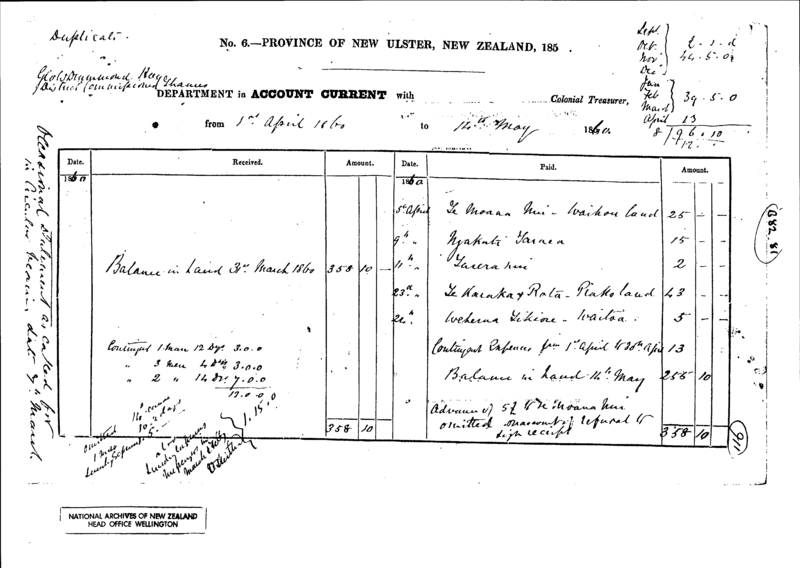 Duplicate
No. 6.—PROVINCE OF NEW ULSTER, NEW ZEALAND, 185 .
Drummond Hay
District Commissioner Thames
DEPARTMENT in ACCOUNT CURRENT with
Colonial Treasurer,
from 1st April 1860 to 14th May 1860
Sept.
Oct. 2.1.d
Nov.
Dec.
Jan
Feb 39.5.0
March
April 13
8 / 96.10
12.
Date. Received. Amount. Date. Paid. Amount.
1860 1860
5th April Te Moana Nui - Waihou land 25 - -
9th " Ngakuti Taraea 15 - -
Balance in hand 31st March 1860 358 10 - 11th " 2 - -
23rd " Te Karaka & Rota - Piako land 43 - -
24th " - Waitoa. 5 - -
Contingent 1 man 12 Dys. 3.0.0
Contingent Expenses from 1st April to 30th April 13
" 3 men 4 Dys 3.0.0
" 2 " 14 Dys 7.0.0
Balance in hand 14th May 255 10
1.15.0
Advance of 5£ to Te Moana Nui
omitted on account of refusal to
sign receipt
358 10 358 10
Occasional Statement as called for
in Circular date 7th March
omitted
1 man
B82.81
911
NATIONAL ARCHIVES OF NEW ZEALAND
HEAD OFFICE WELLINGTON